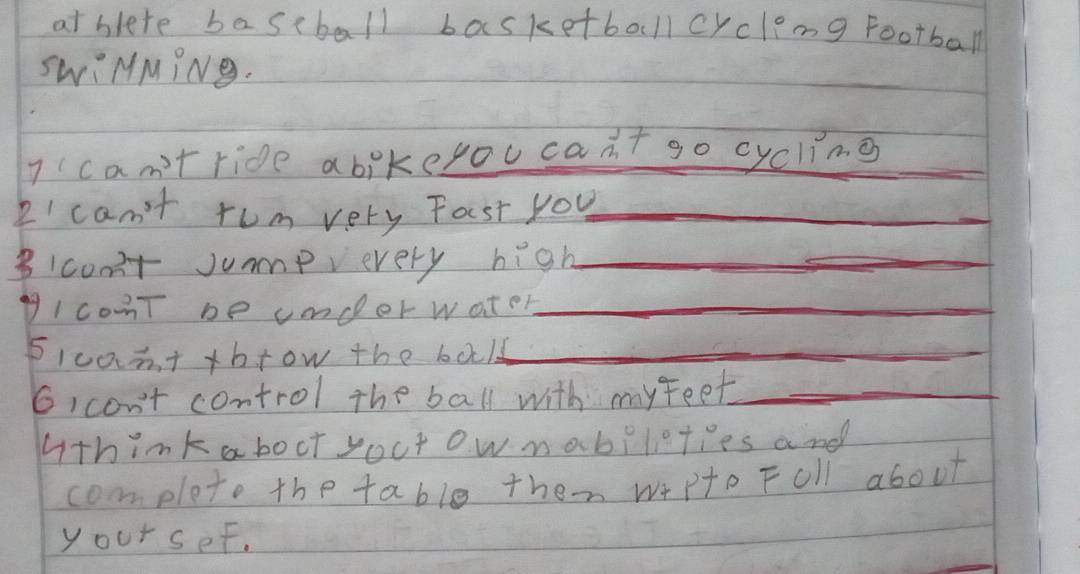 athlete baseball basketball cycling Football
SWiMMiNg.
1 I can't ride abike you can't go cycling
2 I can't run very Fast you
3 I can't Jump very high
4 I can't be under water
5 I can't throw the ball
6 I can't control the ball with my Feet
4 think about your Own abilities and
complete the table then write Full about
your sef.